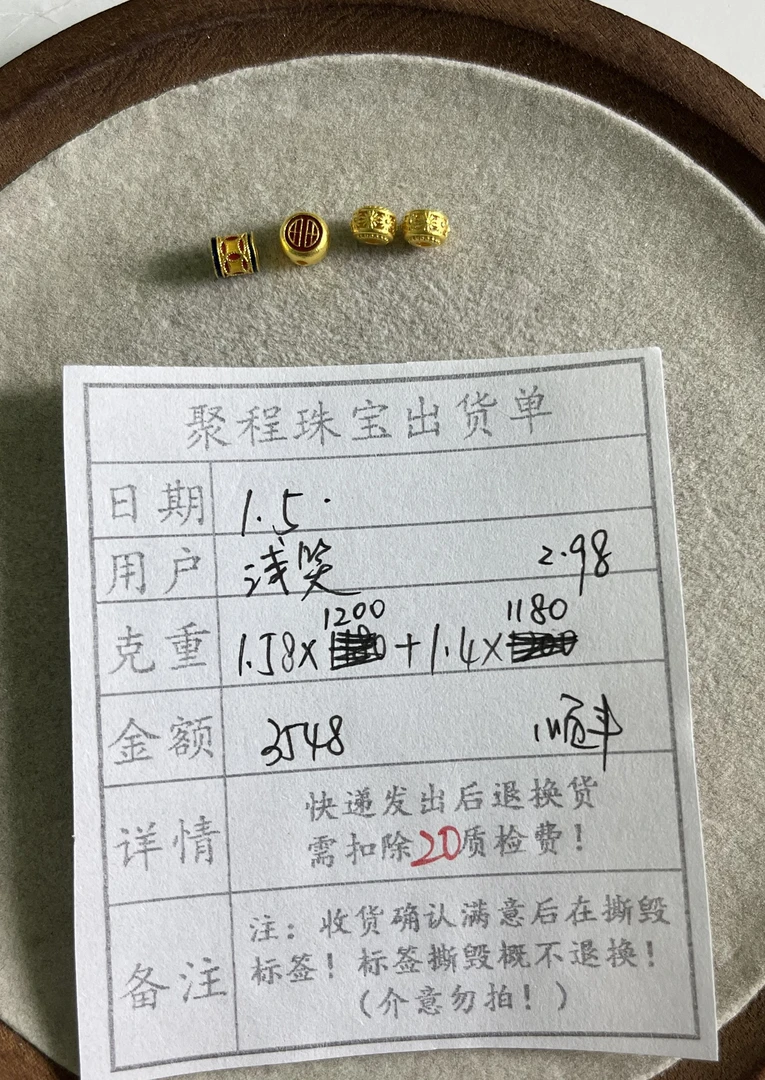 聚程珠宝出货单
日期 1.5.
用户 浅笑 2.98
1200 1180
克重 1.58x +1.4x
金额 3548 顺丰
详情 快递发出后退换货
需扣除20质检费！
备注 注：收货确认满意后在撕毁
标签！标签撕毁概不退换！
（介意勿拍！）